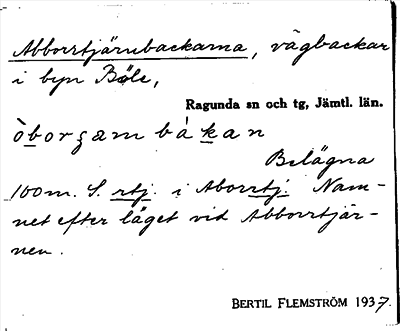 Abborrtjärnbackarna, vägbackar
i byn Böle,
Ragunda sn och tg, Jämtl. län.
Belägna
100 m. S. rtj. i Aborrtj. Nam-
net efter läget vid Abborrtjär-
nen.
BERTIL FLEMSTRÖM 1937.